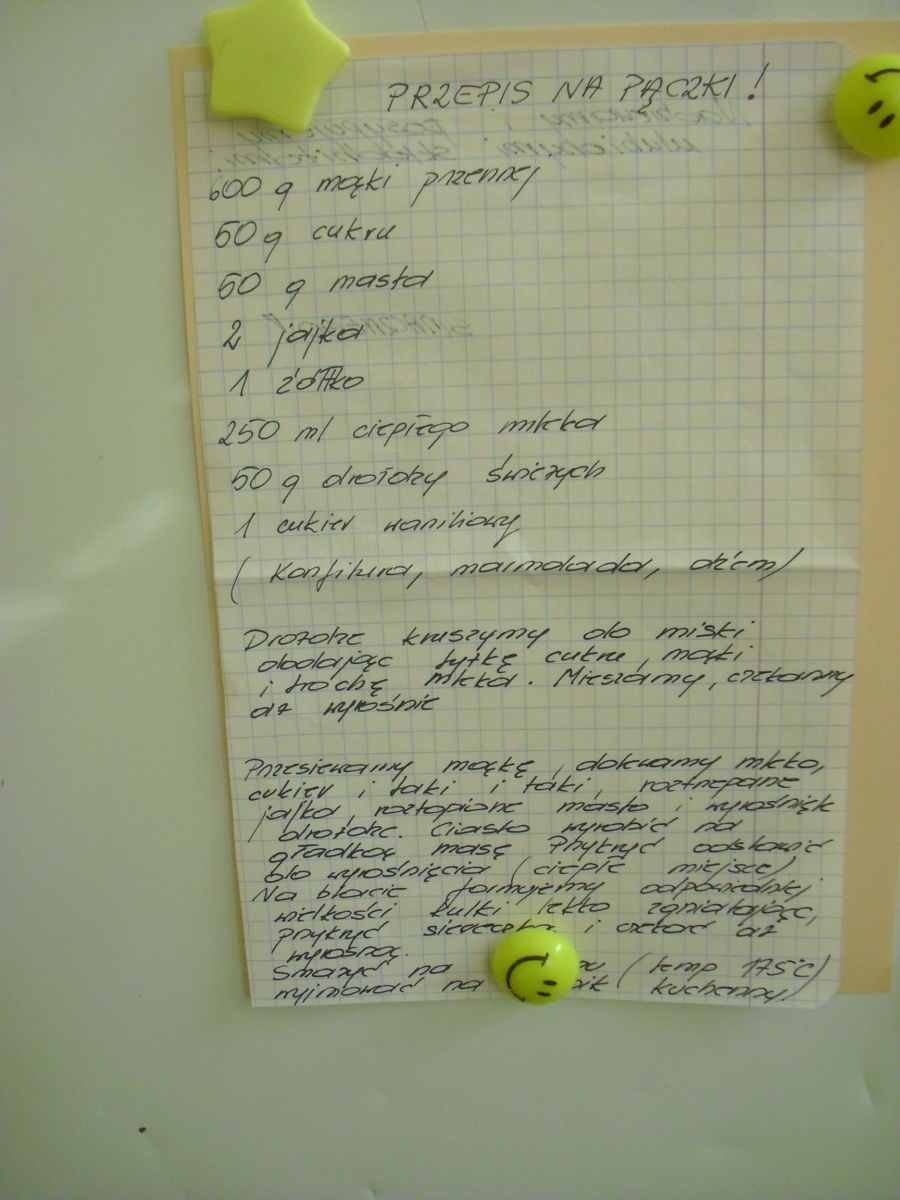 PRZEPIS NA PĄCZKI!
600 g mąki przennej
50 g cukru
50 g masła
2 jajka
1 żółtko
250 ml ciepłego mleka
50 g drożdży świeżych
1 cukier waniliowy
( Konfitura, marmolada, dżem)
Drożdże kruszymy do miski
dodając łyżkę cukru, mąki
i trochę mleka. Mieszamy, czekamy
aż wyrośnie
Przesiewamy mąkę, dolewamy mleko,
cukier i taki i taki, roztrzepane
jajka, roztopione masło i wyrośnięte
drożdże. Ciasto wyrobić na
gładkąę masę Przykryć odstawić
do wyrośnięcia (ciepłe miejsce)
Na blacie formujemy odpowiedniej
wielkości kulki lekko zgniatając,
przykryć i czekać aż
wyrosną.
Smażyć na (temp 175°C)
wyjmować na (kuchenny)